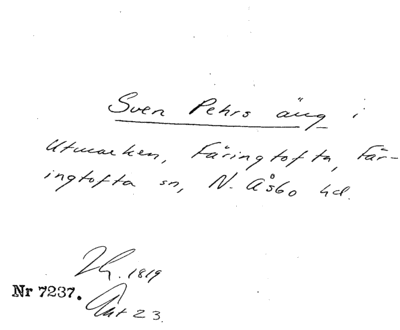 Sven Pehrs äng i
Utmarken, Färingtofta, Fär-
ingtofta sn, N. Åsbo hd.
Th. 1819
Nr 7237.
Akt 23.